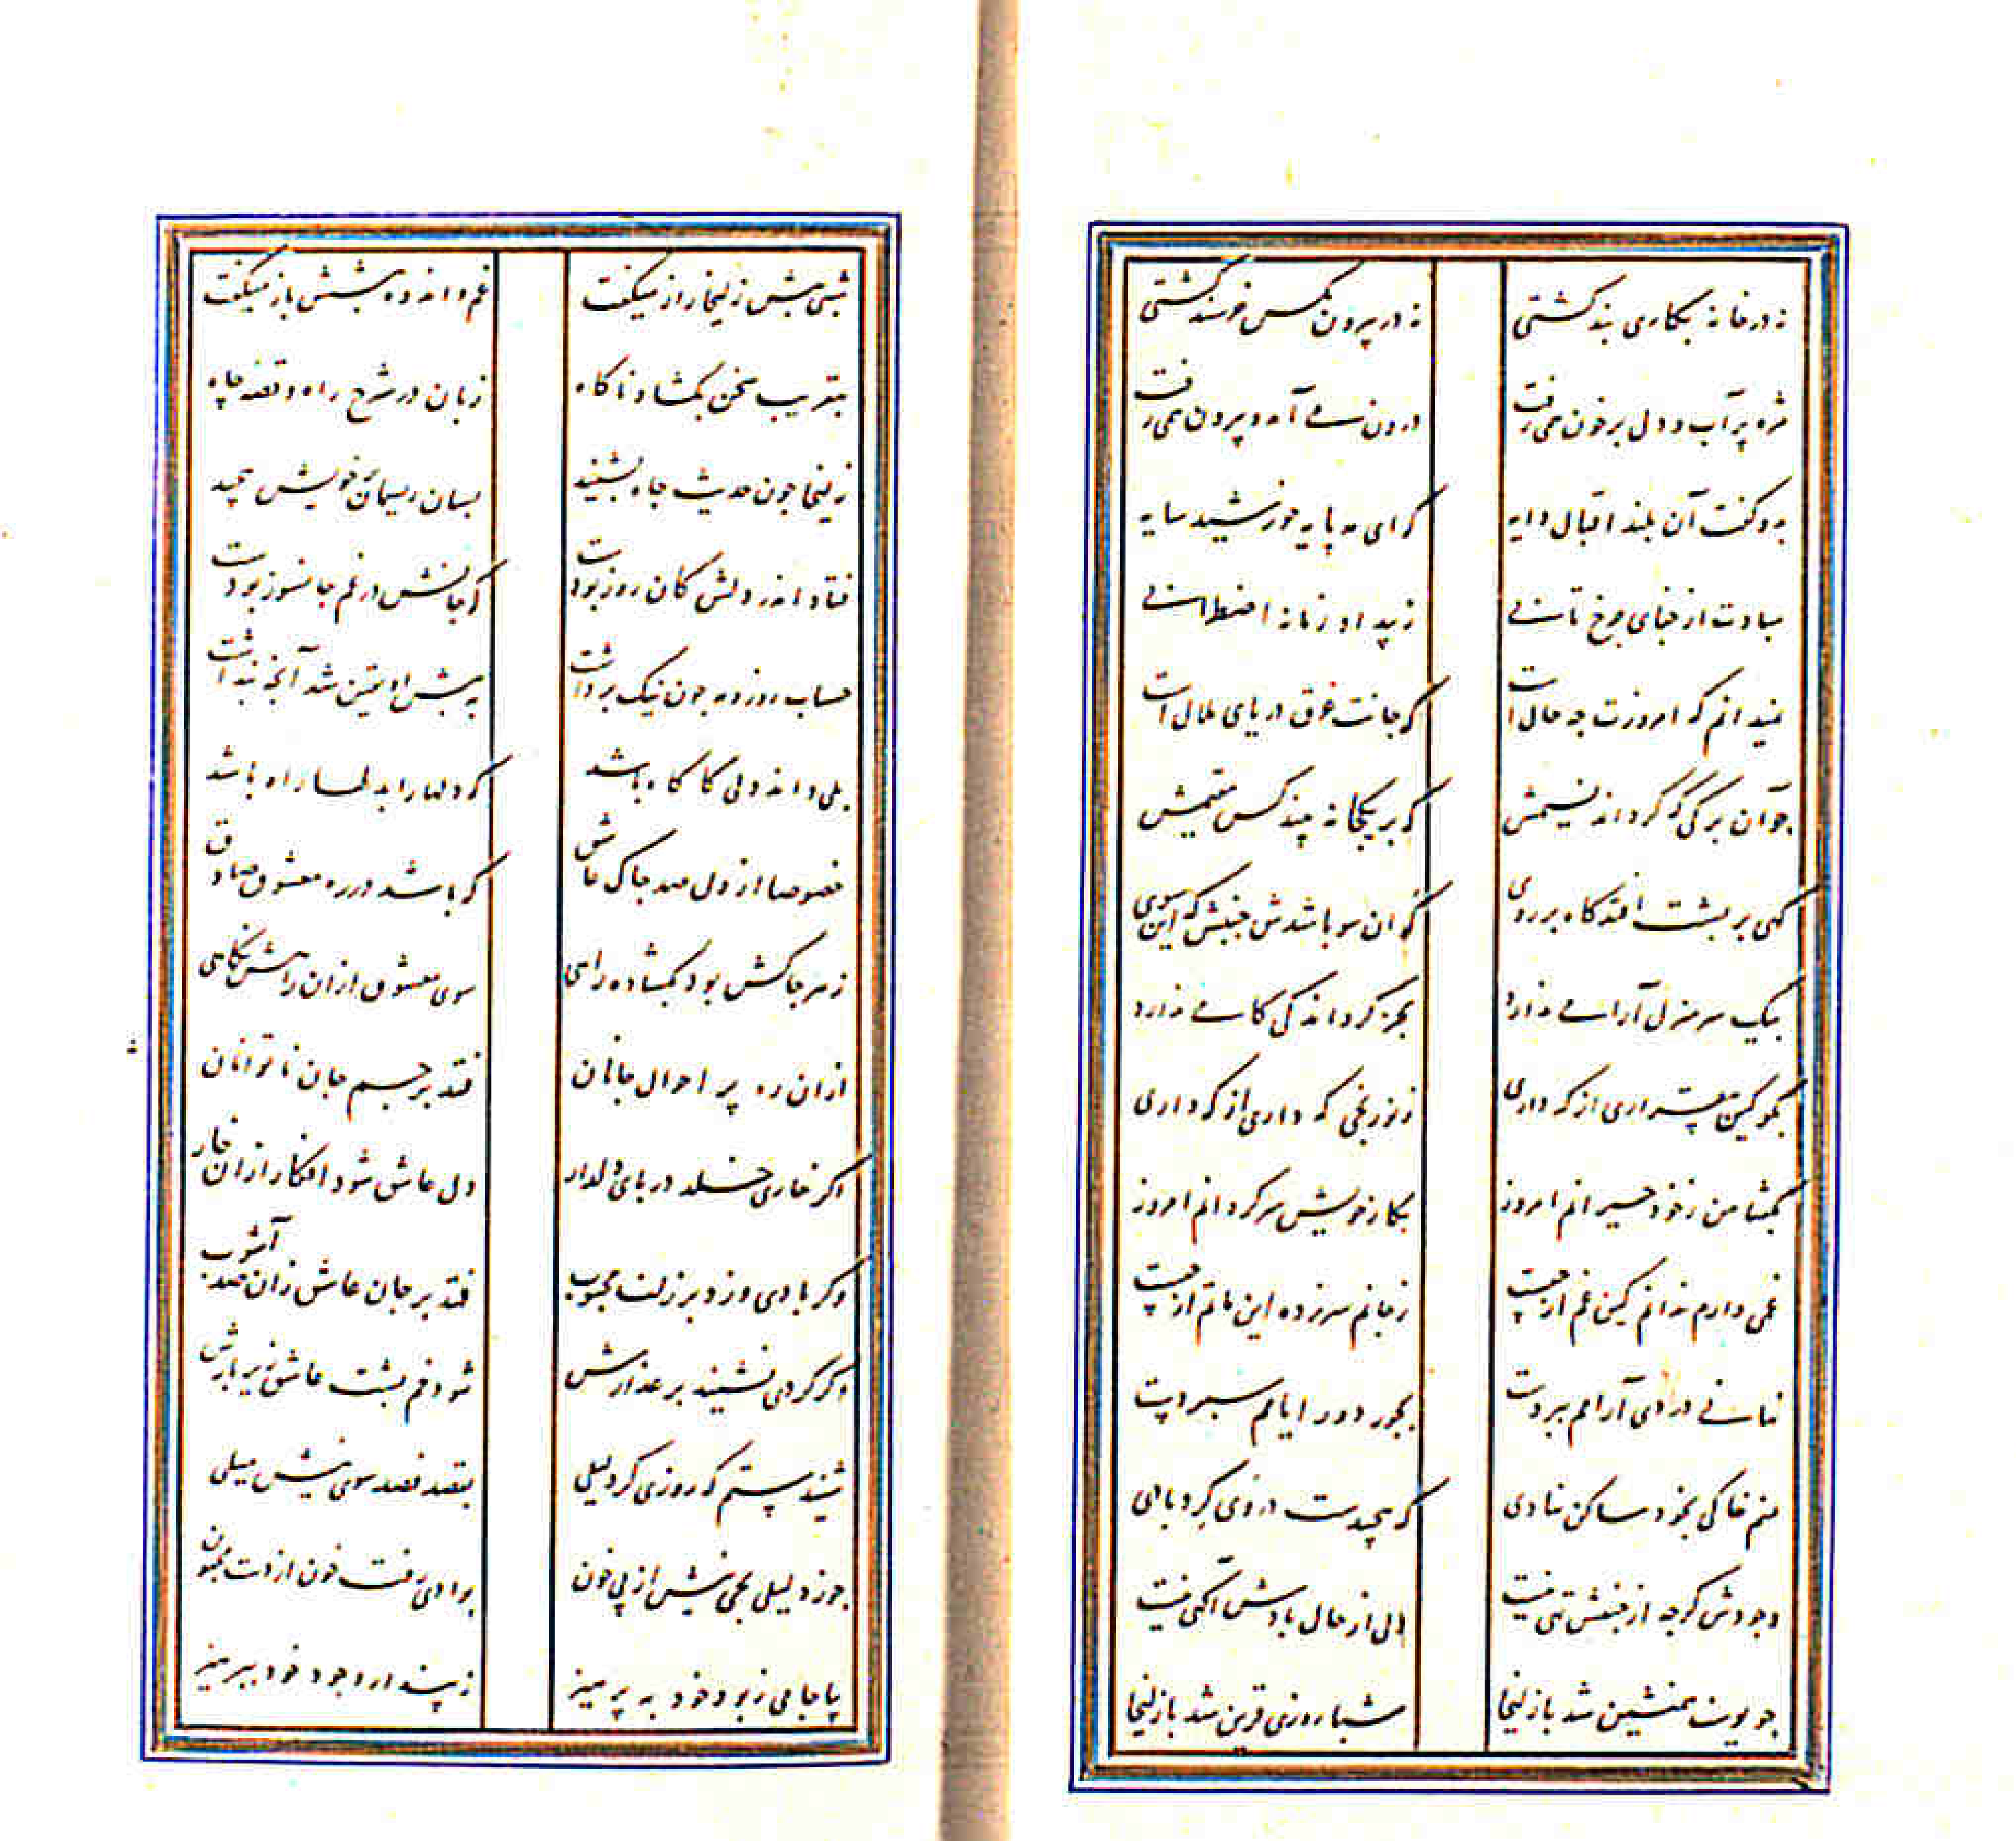 نه در خانه بکاری بند کشتی نه در بیرون بکس خرسند کشتی
مژه پر آب و دل پر خون همی رفت درون می آمد و بیرون همی رفت
بدو کفت آن بلند اقبال دایه که ای مه پایه خورشید سایه
مبادت از جفای چرخ تابی ز بیداد زمانه اضطرابی
نمیدانم که امروزت چه حالست که جانت غرق دریای ملالست
چو آن برکی که کرداند نسیمش که بر یکجا نه بیند کس مقیمش
کهی بر پشت افتد کاه بر روی که ان سو باشدش جنبش که این سوی
بیک سر منزل آرامی ندارد بجز کردندکی کامی ندارد
بکو کین بیقراری از که داری ز نو رنجی که داری از که داری
بکفتا من ز خود حیرانم امروز بکار خویش سرکردانم امروز
غمی دارم ندانم کین غم از چیست ز جانم سر زده این ماتم از چیست
نهانی دردی آرامم ببردست بجور دور ایامم سپردست
منم خاکی بخود ساکن نهادی که پیچیدست در وی کردبادی
وجودش کرچه از جنبش تهی نیست ولی از حال بادش آکهی نیست
چو یوسف همنشین شد با زلیخا شبا روزی قرین شد با زلیخا
شبی پیش زلیخا راز میکفت غم و اندوه پیشش باز میکفت
بتقریب سخن بکشاد ناکاه زبان در شرح راه و قصه چاه
زلیخا چون حدیث چاه بشنید بسان ریسمان بر خویش پیچید
فتاد اندر دلش کان روز بودست که جانش در غم جانسوز بودست
حساب روز و مه چون نیک برداشت به پیشش او یقین شد آنچه پنداشت
بلی داند دلی کاکاه باشد که دلها را بدلها راه باشد
خصوصا از دل صد چاک عاشق که باشد در ره معشوق صادق
ز هر چاکش بود بکشاده راهی سوی معشوق ازان راهش نکاهی
ازان ره پر احوال جانان فتد بر جسم جان ناتوانان
اکر خاری خلد در پای دلدار دل عاشق شود افکار ازان خار
وکر بادی وزد بر زلف محبوب فتد بر جان عاشق زان صد آشوب
اکر کردی نشیند بر عذارش شود خم پشت عاشق زیر بارش
شنیدستم که روزی کرد لیلی بقصد فصد سوی نیش میلی
چو زد لیلی بحی نیش از پی خون بوادی رفت خون از دست مجنون
بیا جامی ز بود خود بپرهیز ز پندار وجود خود بپرهیز